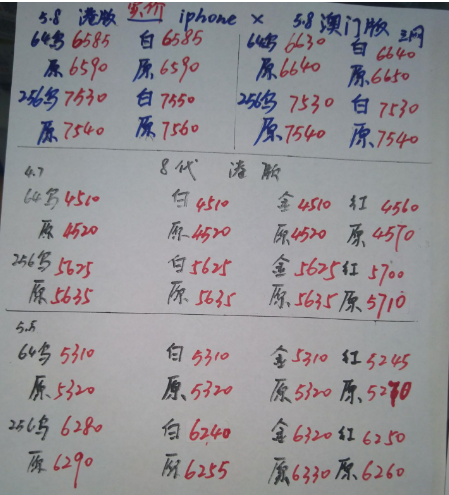 5.8 港版 实价 iphone X 5.8 澳门版 三网
64鸟 6585 白 6585 64鸟 6630 白 6640
原 6590 原 6590 原 6640 原 6650
256鸟 7530 白 7550 256鸟 7530 白 7530
原 7540 原 7560 原 7540 原 7540
4.7 8代 港版
64鸟 4510 白 4510 金 4510 红 4560
原 4520 原 4520 原 4520 原 4570
256鸟 5625 白 5625 金 5625 红 5700
原 5635 原 5635 原 5635 原 5710
5.5
64鸟 5310 白 5310 金 5310 红 5245
原 5320 原 5320 原 5320 原 5270
256鸟 6280 白 6240 金 6320 红 6250
原 6290 原 6255 原 6330 原 6260